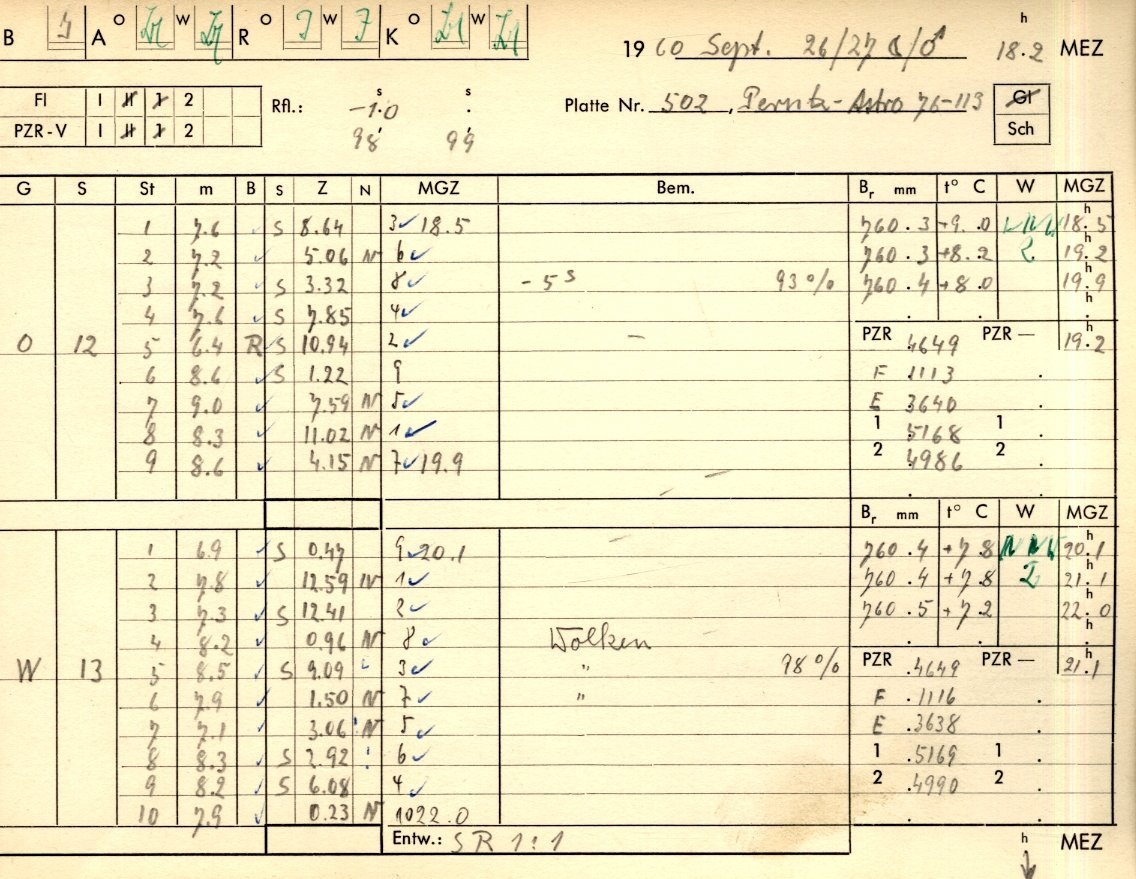 B A O W R O W K O W 1960 Sept. 26/27 h 18.2 MEZ
Fl I II 1 2 Rfl.: s -1.0 s . Platte Nr. 502, Astro 76-113 Gl
PZR-V I II 1 2 98 99 Sch
G S St m B S Z N MGZ Bem. Br mm t° C W MGZ
1 7.6 ✓ S 8.64 3✓ 18.5 760.3 +9.0 h 18.5
2 7.2 ✓ 5.06 N 6✓ 760.3 +8.2 2 h 19.2
3 7.2 ✓ S 3.32 8✓ -5 s 93% 760.4 +8.0 h 19.9
4 7.6 ✓ S 7.85 4✓ h
O 12 5 6.4 R S 10.94 2✓ – PZR 4649 PZR — 19.2
6 8.6 ✓ S 1.22 9 F 1113
7 9.0 ✓ 7.59 N 5✓ E 3640
8 8.3 ✓ 11.02 N 1✓ 1 5168 1
9 8.6 ✓ 4.15 N 7✓ 19.9 2 4986 2
Br mm t° C W MGZ
1 6.9 ✓ S 0.47 9✓ 20.1 – 760.4 +7.8 h 20.1
2 7.8 ✓ 12.59 N 1✓ 760.4 +7.8 2 h 21.1
3 7.3 ✓ S 12.41 2✓ 760.5 +7.2 h 22.0
4 8.2 ✓ 0.96 N 8✓ Wolken h
W 13 5 8.5 ✓ S 9.09 3✓ " 98% PZR .4649 PZR — 21.1
6 7.9 ✓ 1.50 N 7✓ " F .1116
7 7.1 ✓ 3.06 N 5✓ E .3638
8 8.3 ✓ S 2.92 ! 6✓ 1 .5169 1
9 8.2 ✓ S 6.08 4✓ 2 .4990 2
10 7.9 ✓ 0.23 N 10 22.0
Entw.: SR 1:1 h MEZ